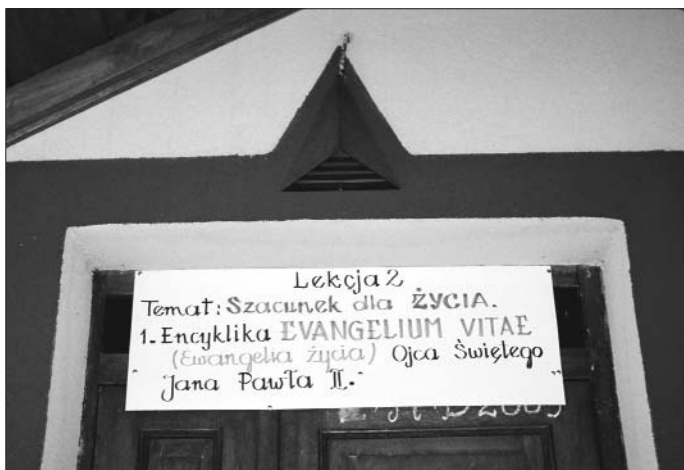 Lekcja 2
Temat: Szacunek dla ŻYCIA.
1. Encyklika EVANGELIUM VITAE
(Ewangelia życia) Ojca Świętego
Jana Pawła II.